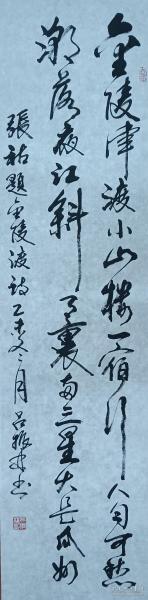 金陵津渡小山樓一宿行人自可愁
潮落夜江斜月裏兩三星火是瓜州
張祜題金陵渡詩乙未月吕振書